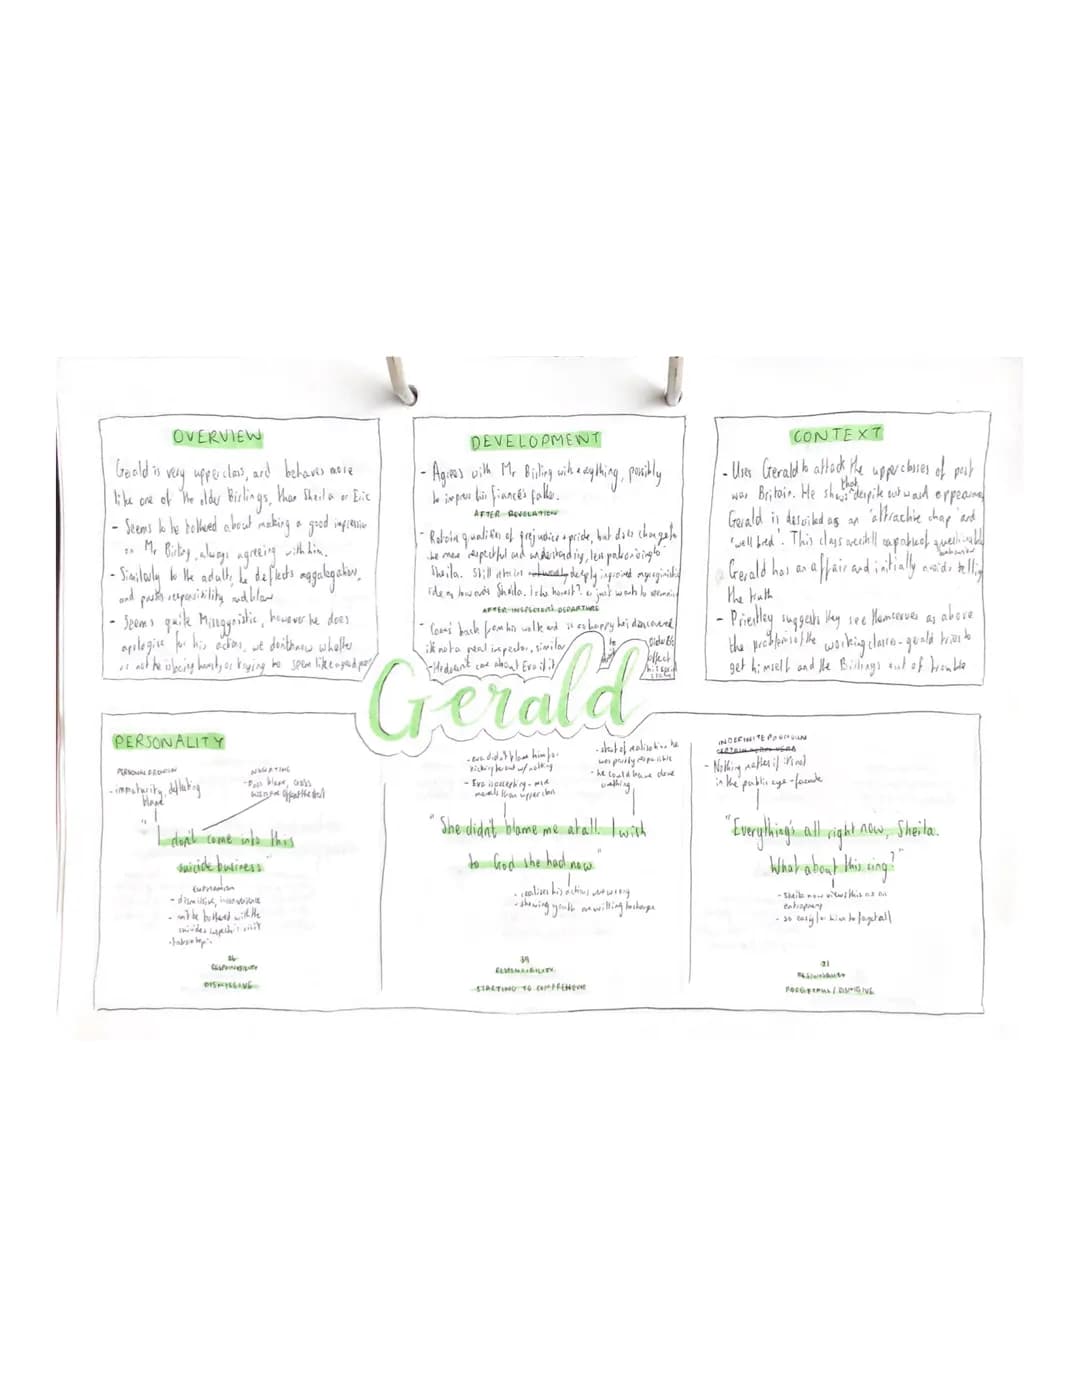 OVERVIEW
Gerald is very upperclass, and behaves more
like one of the older Birlings, than Sheila or Eric
- Seems to be bothered about making a good impression
on Mr Birling, always agreeing with him.
- Similarly to the adults, he deflects
and passes responsibility and blame
- Seems quite Missogynistic, however he does
apologise for his actions, we don't know whether
or not he is being honest, or trying to seem like a good person
DEVELOPMENT
- Agrees with Mr Birling with everything, possibly
to impress his fiancé's father.
AFTER REVELATION
- Retains qualities of prejudice + pride, but does change to
be more respectful and understanding, less patronising to
Sheila. Still retains deeply ingrained
ideas towards Sheila. Is he honest? or just wants to
AFTER INSPECTORS DEPARTURE
- Comes back from his walk and is so happy he's discovered
it's not a real inspector, similar to
- He doesn't care about Eva if it
didn't
affect
CONTEXT
- Uses Gerald to attack the upper classes of post
war Britain. He shows that despite outward appearance
Gerald is described as an 'attractive chap' and
'well bred'. This class are still capable of questionable
behaviour
Gerald has an affair and initially avoids telling
the truth
- Priestley suggests they see themselves as above
the problems of the working classes - gerald tries to
get himself and the Birlings out of trouble
Gerald
PERSONALITY
PERSONAL PRONOUN
- immaturity, deflating
blame
NEGATIVE
"I don't come into this
suicide business"
EUPHEMISM
- dismissive, inconvenience
- not be bothered with the
suicide + inspector's visit
- taboo topic
26
RESPONSIBILITY
DISMISSIVE
- eva didn't blame him for
kicking her out w/ nothing
- Eva is accepting - more
morals than upper class
- start of realisation he
was partly responsible
- he could have done
something
"She didn't blame me at all. I wish
to God she had now"
- realises his actions were wrong
- showing youth are willing to change
39
RESPONSIBILITY
STARTING TO COMPREHEND
INDEFINITE PRONOUN
- Nothing matters if it's not
in the public eye - facade
"Everything's all right now, Sheila.
What about this ring?"
- Sheila now views this as an
- so easy for him to forget all
RESPONSIBILITY
FORGETFUL / DISMISSIVE